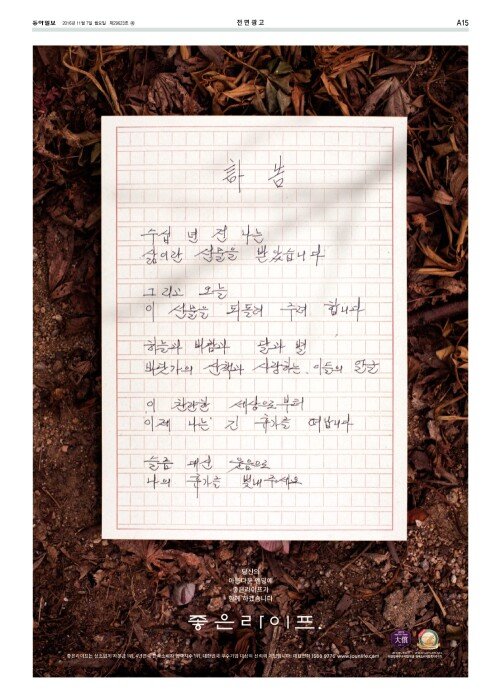 동아일보 2016년 11월 7일 월요일
전면광고
A15
訃告
수십 년 전 나는
삶이란 선물을 받았습니다
그리고 오늘
이 선물을 되돌려 주려 합니다
하늘과 바람과 달과 별
바닷가의 산책과 사랑하는 이들의 얼굴
이 찬란한 세상으로부터
이제 나는 긴 휴가를 떠납니다
슬픔 대신 웃음으로
나의 휴가를 빛내주세요
당신의
아름다운 엔딩에
좋은라이프가
함께 하겠습니다
좋은라이프.
大賞